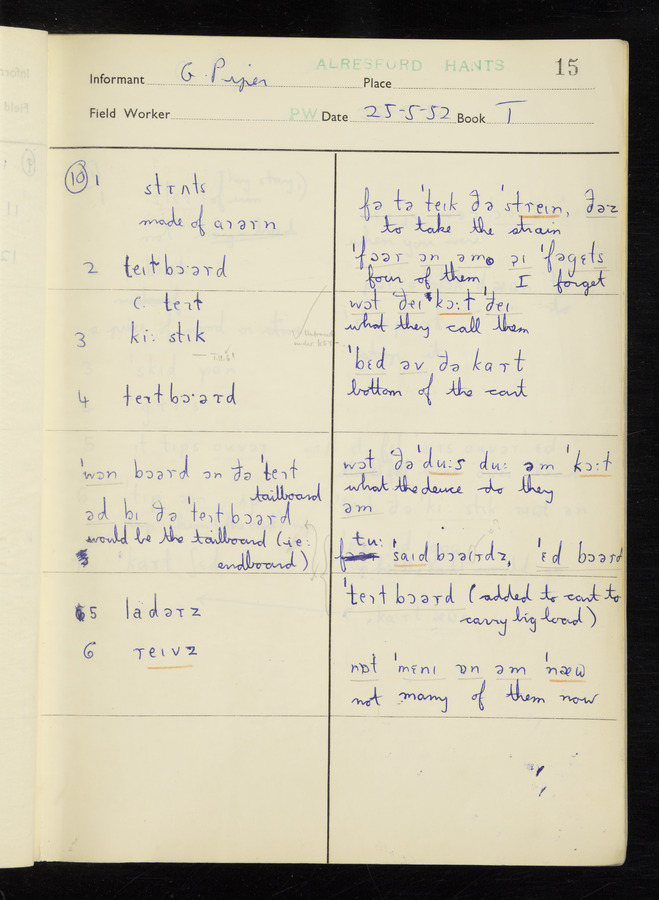 ALRESFORD HANTS
15
Informant G. Piper Place
Field Worker PW Date 25-5-52 Book I
10 1 strɪnts
made of aɪərn
2 teɪtbɔərd
c. teɪt
3 ki: stɪk
4 teɪtbɔ·ərd
'wɒn bɔərd ɔn ðə 'teɪt
tailboard
əd bɪ ðə 'teɪtbɔərd
would be the tailboard (i.e:
endboard)
5 ladərz
6 reɪvz
fə tə 'teɪk ðə 'streɪn, ðəz
to take the strain
'fɔər ɔn əm əɪ 'fəgɛts
four of them I forget
wɔt ðeɪ kɔ:t ðeɪ
what they call them
'bɛd əv ðə kart
bottom of the cart
wɔt ðə 'du:s du: əm 'kɔ:t
what the deuce do they
əm
tu:
'saɪd bɔəɪrdz, 'ɛd bɔərd
'teɪtbɔərd (added to cart to
carry big load)
nɒt 'mɛnɪ ɒn əm 'næw
not many of them now